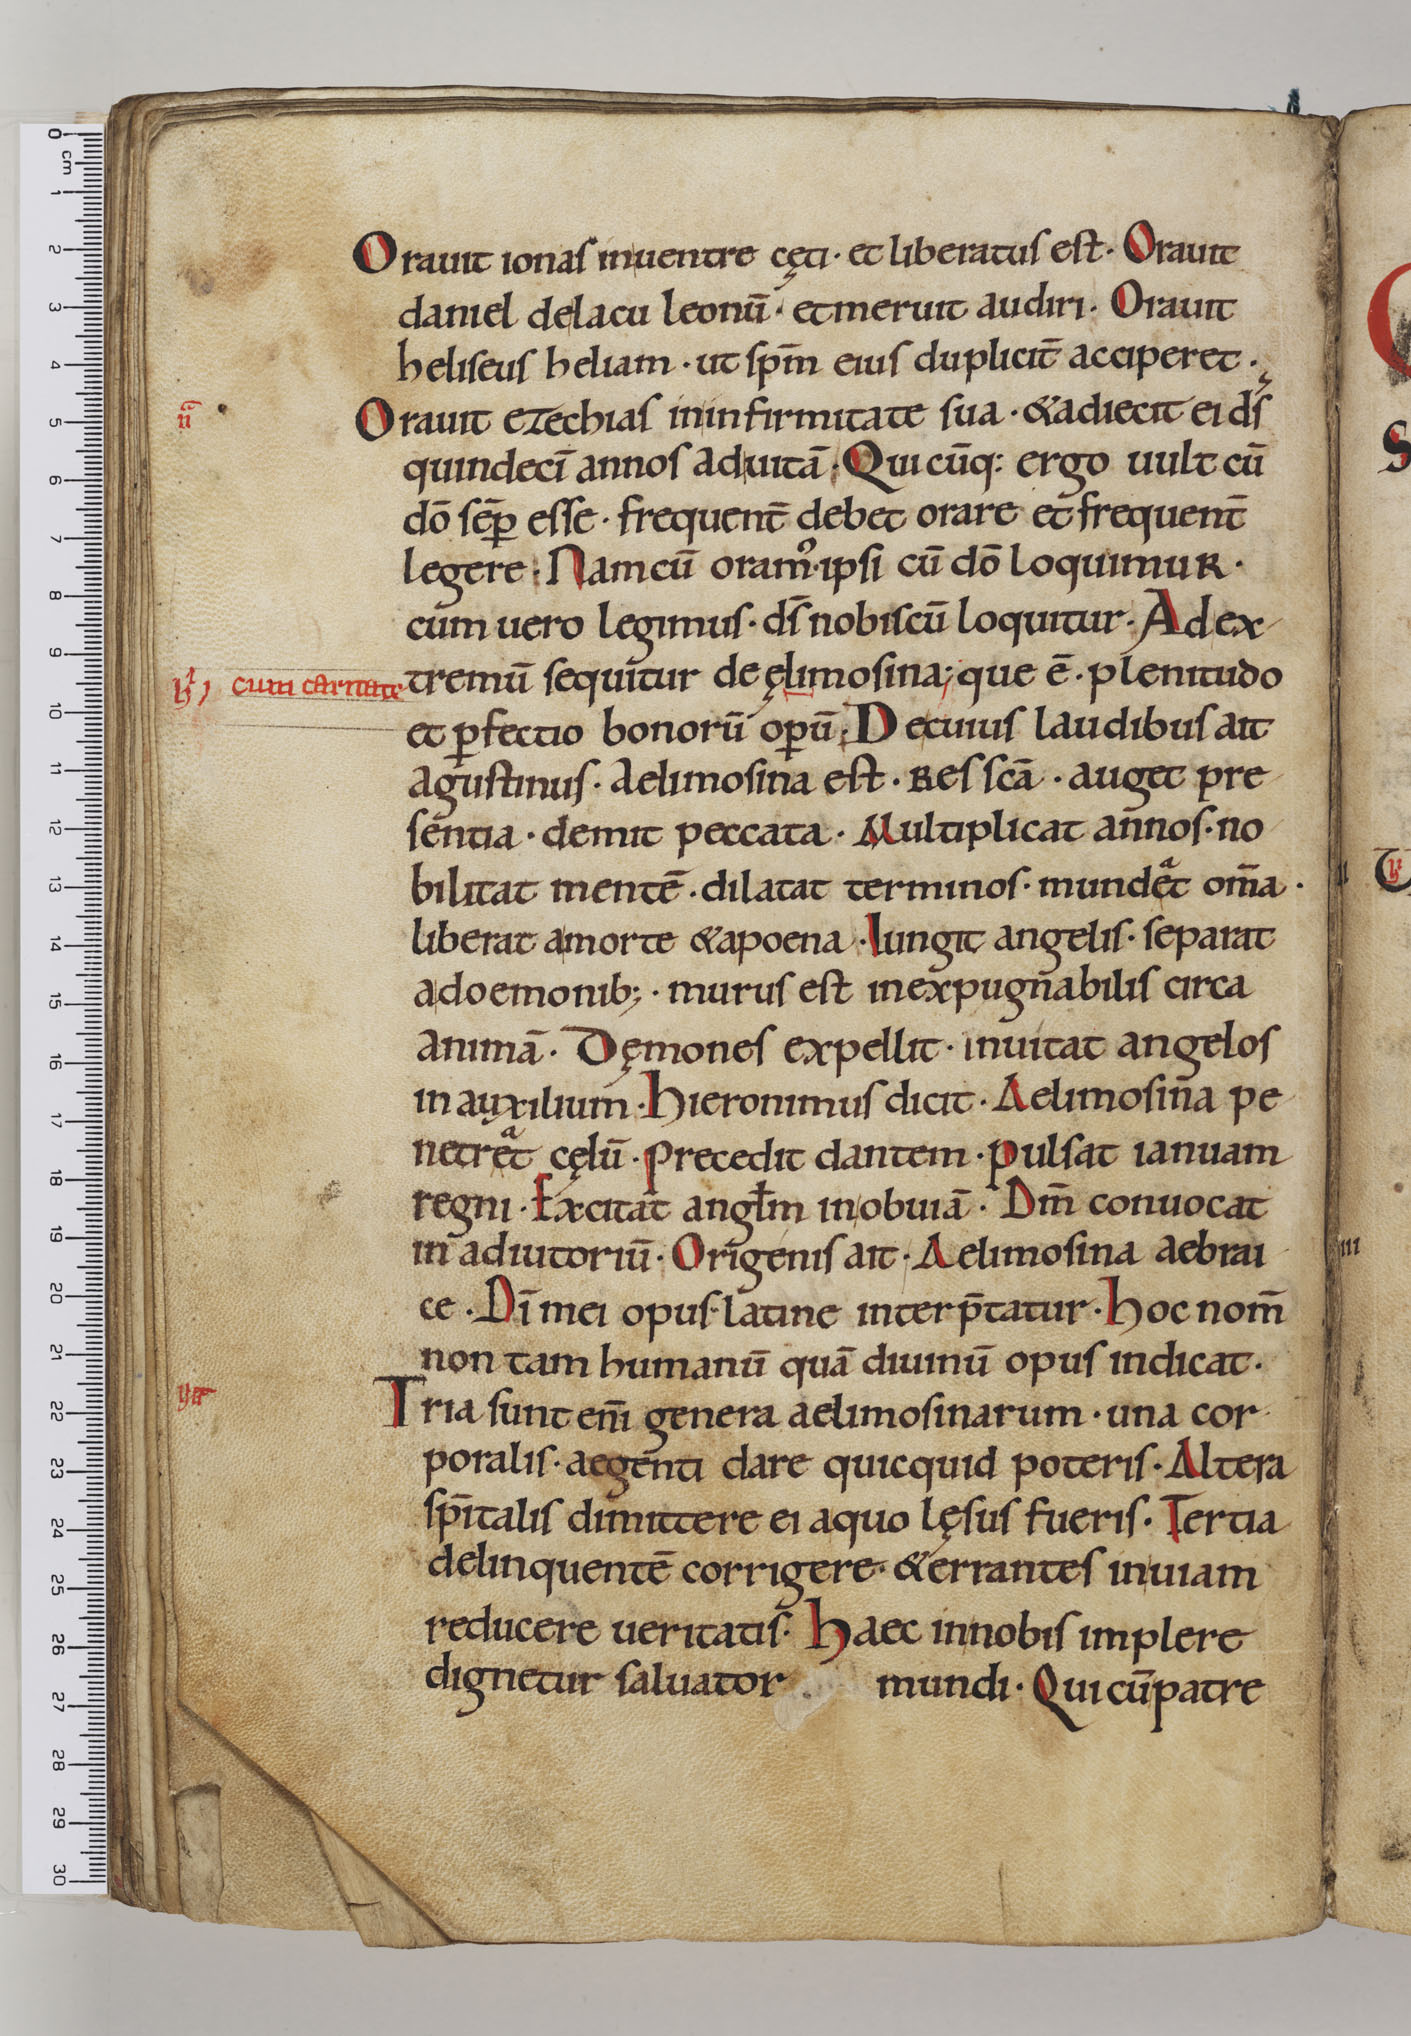 Orauit ionas inuentre cęti · et liberatus est · Orauit
daniel delacu leonū · et meruit audiri · Orauit
heliseus heliam · ut sp̄m eius duplicit̄ acciperet ·
n̄
Orauit ezechias ininfirmitate sua · &adiecit ei ds̄
quindecī annos aduitā · Qui cūq: ergo uult cū
dō sēp̄ esse · frequent̄ debet orare et frequent̄
legere · Nam cū oram᾿ · ipsi cū dō loquimur ·
cum uero legimus · ds̄ nobiscū loquitur · Ad ex
cum caritate
tremū sequitur de ęlimosina; que ē · plenitudo
et p̄fectio bonorū op̄ū · De cuius laudibus ait
agustinus · aelimosina est · Res scā · auget pre
sentia · demit peccata · Multiplicat annos · no
bilitat mentē · dilatat terminos · mundeat om̄a ·
liberat amorte &apoena · Iungit angelis · separat
adoemonib; · murus est inexpugnabilis circa
animā · Dęmones expellit · inuitat angelos
in auxilium · hieronimus dicit · Aelimosina pe
netreat cęlū · precedit dantem · pulsat ianuam
regni · Excitat angl̄m inobuiā · Dm̄ conuocat
in adiutoriū · Origenis ait · Aelimosina aebrai
ce · Dī mei opus · latine interp̄tatur · hoc nom̄
non tam humanū quā diuinū opus indicat ·
Tria sunt eni̅ genera aelimosinarum · una cor
poralis · aegenti dare quicquid poteris · Altera
sp̄italis dimittere ei aquo lęsus fueris · Tertia
delinquentē corrigere · &errantes inuiam
reducere ueritatis · haec innobis implere
dignetur saluator mundi · Qui cū patre